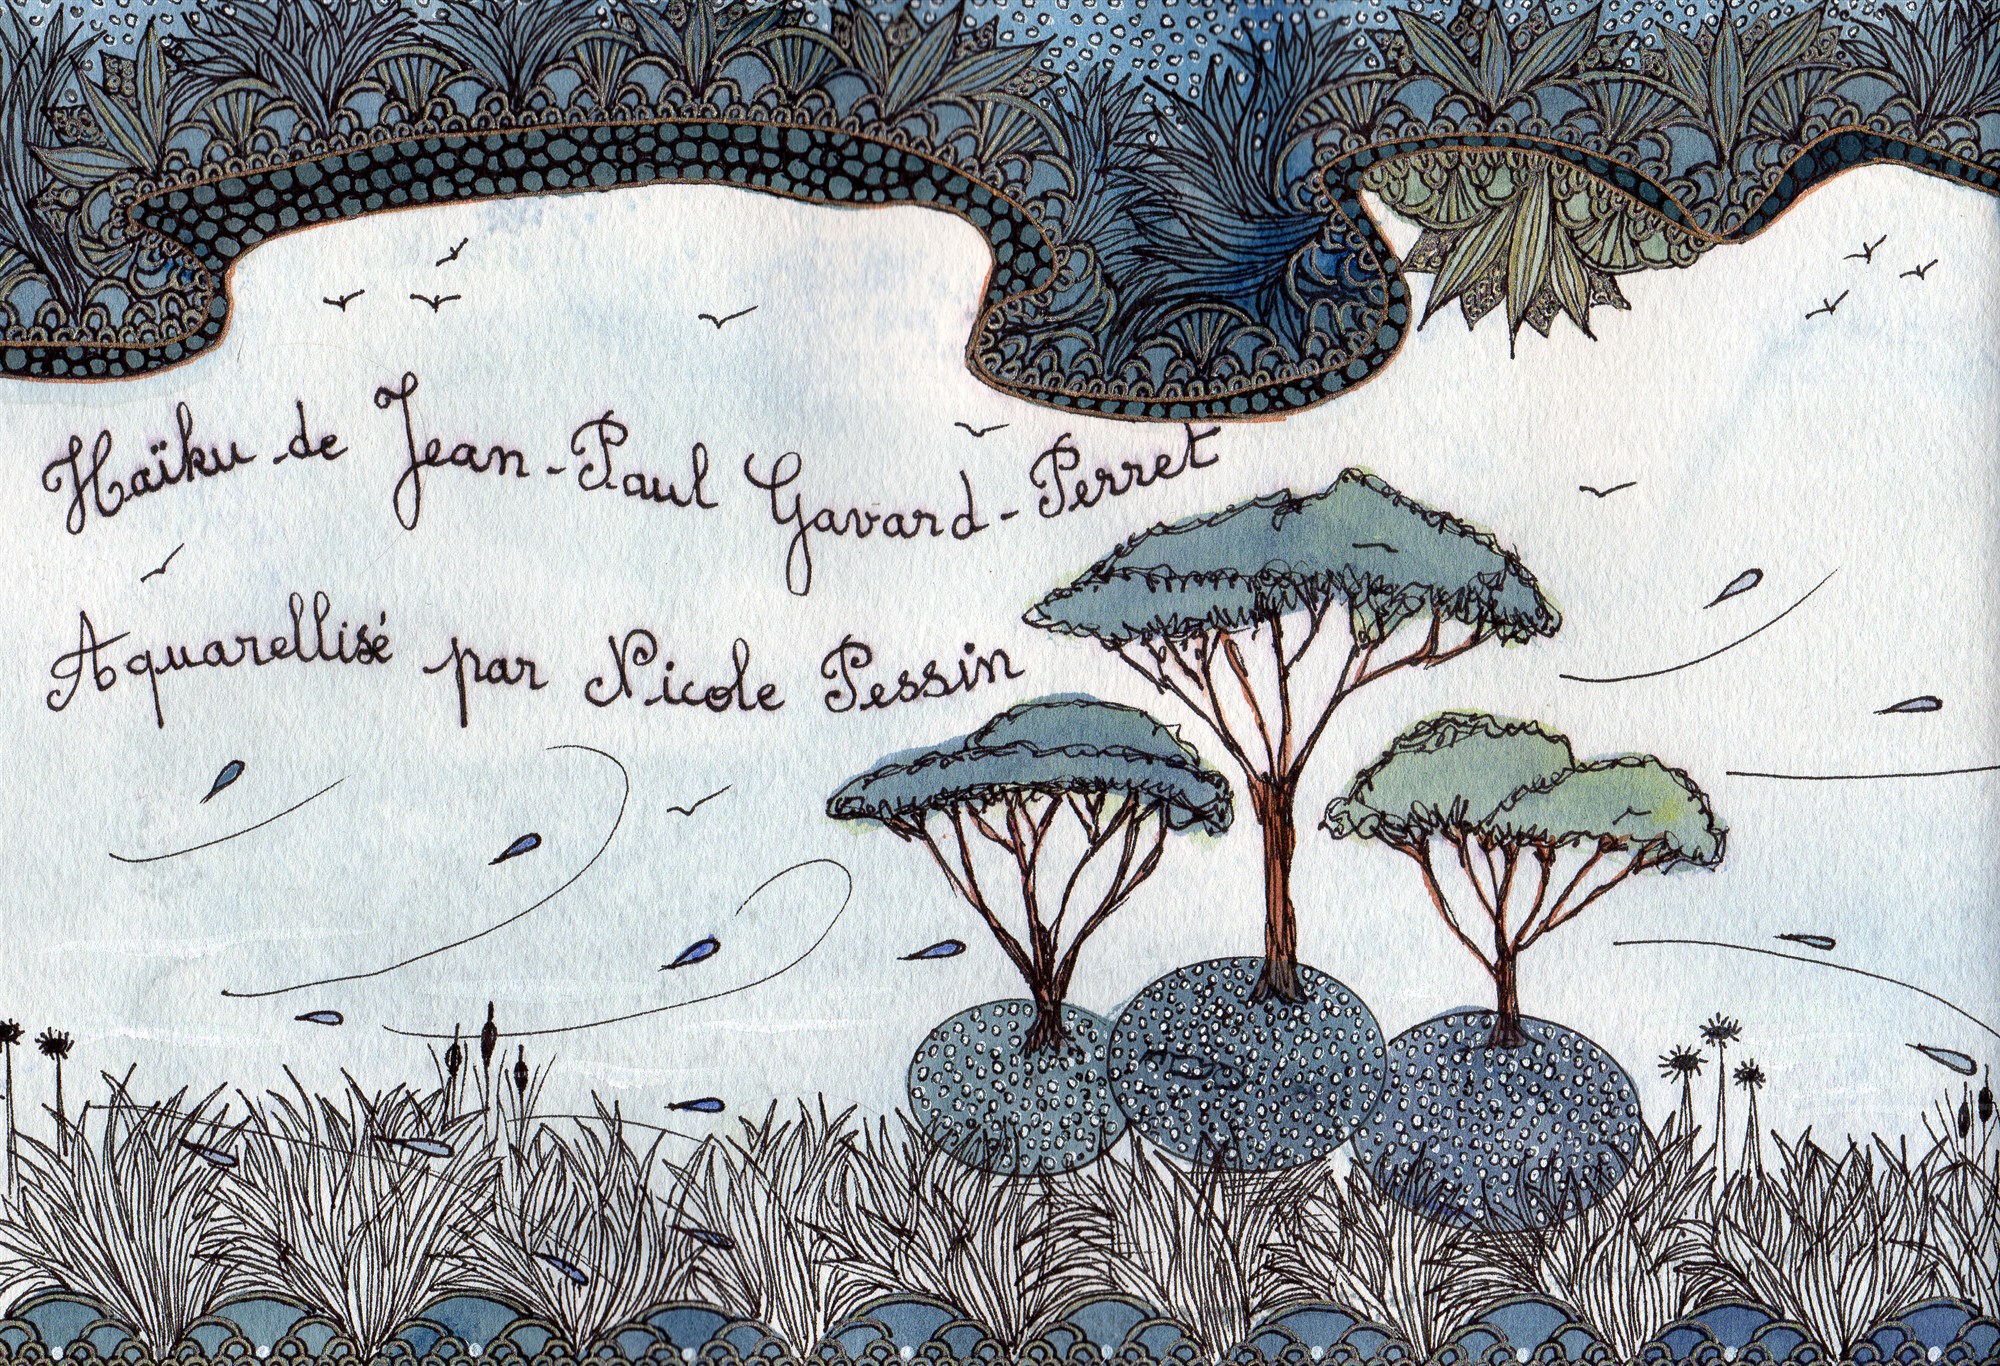 Haïku de Jean-Paul Gavard-Perret
Aquarellisé par Nicole Pessin